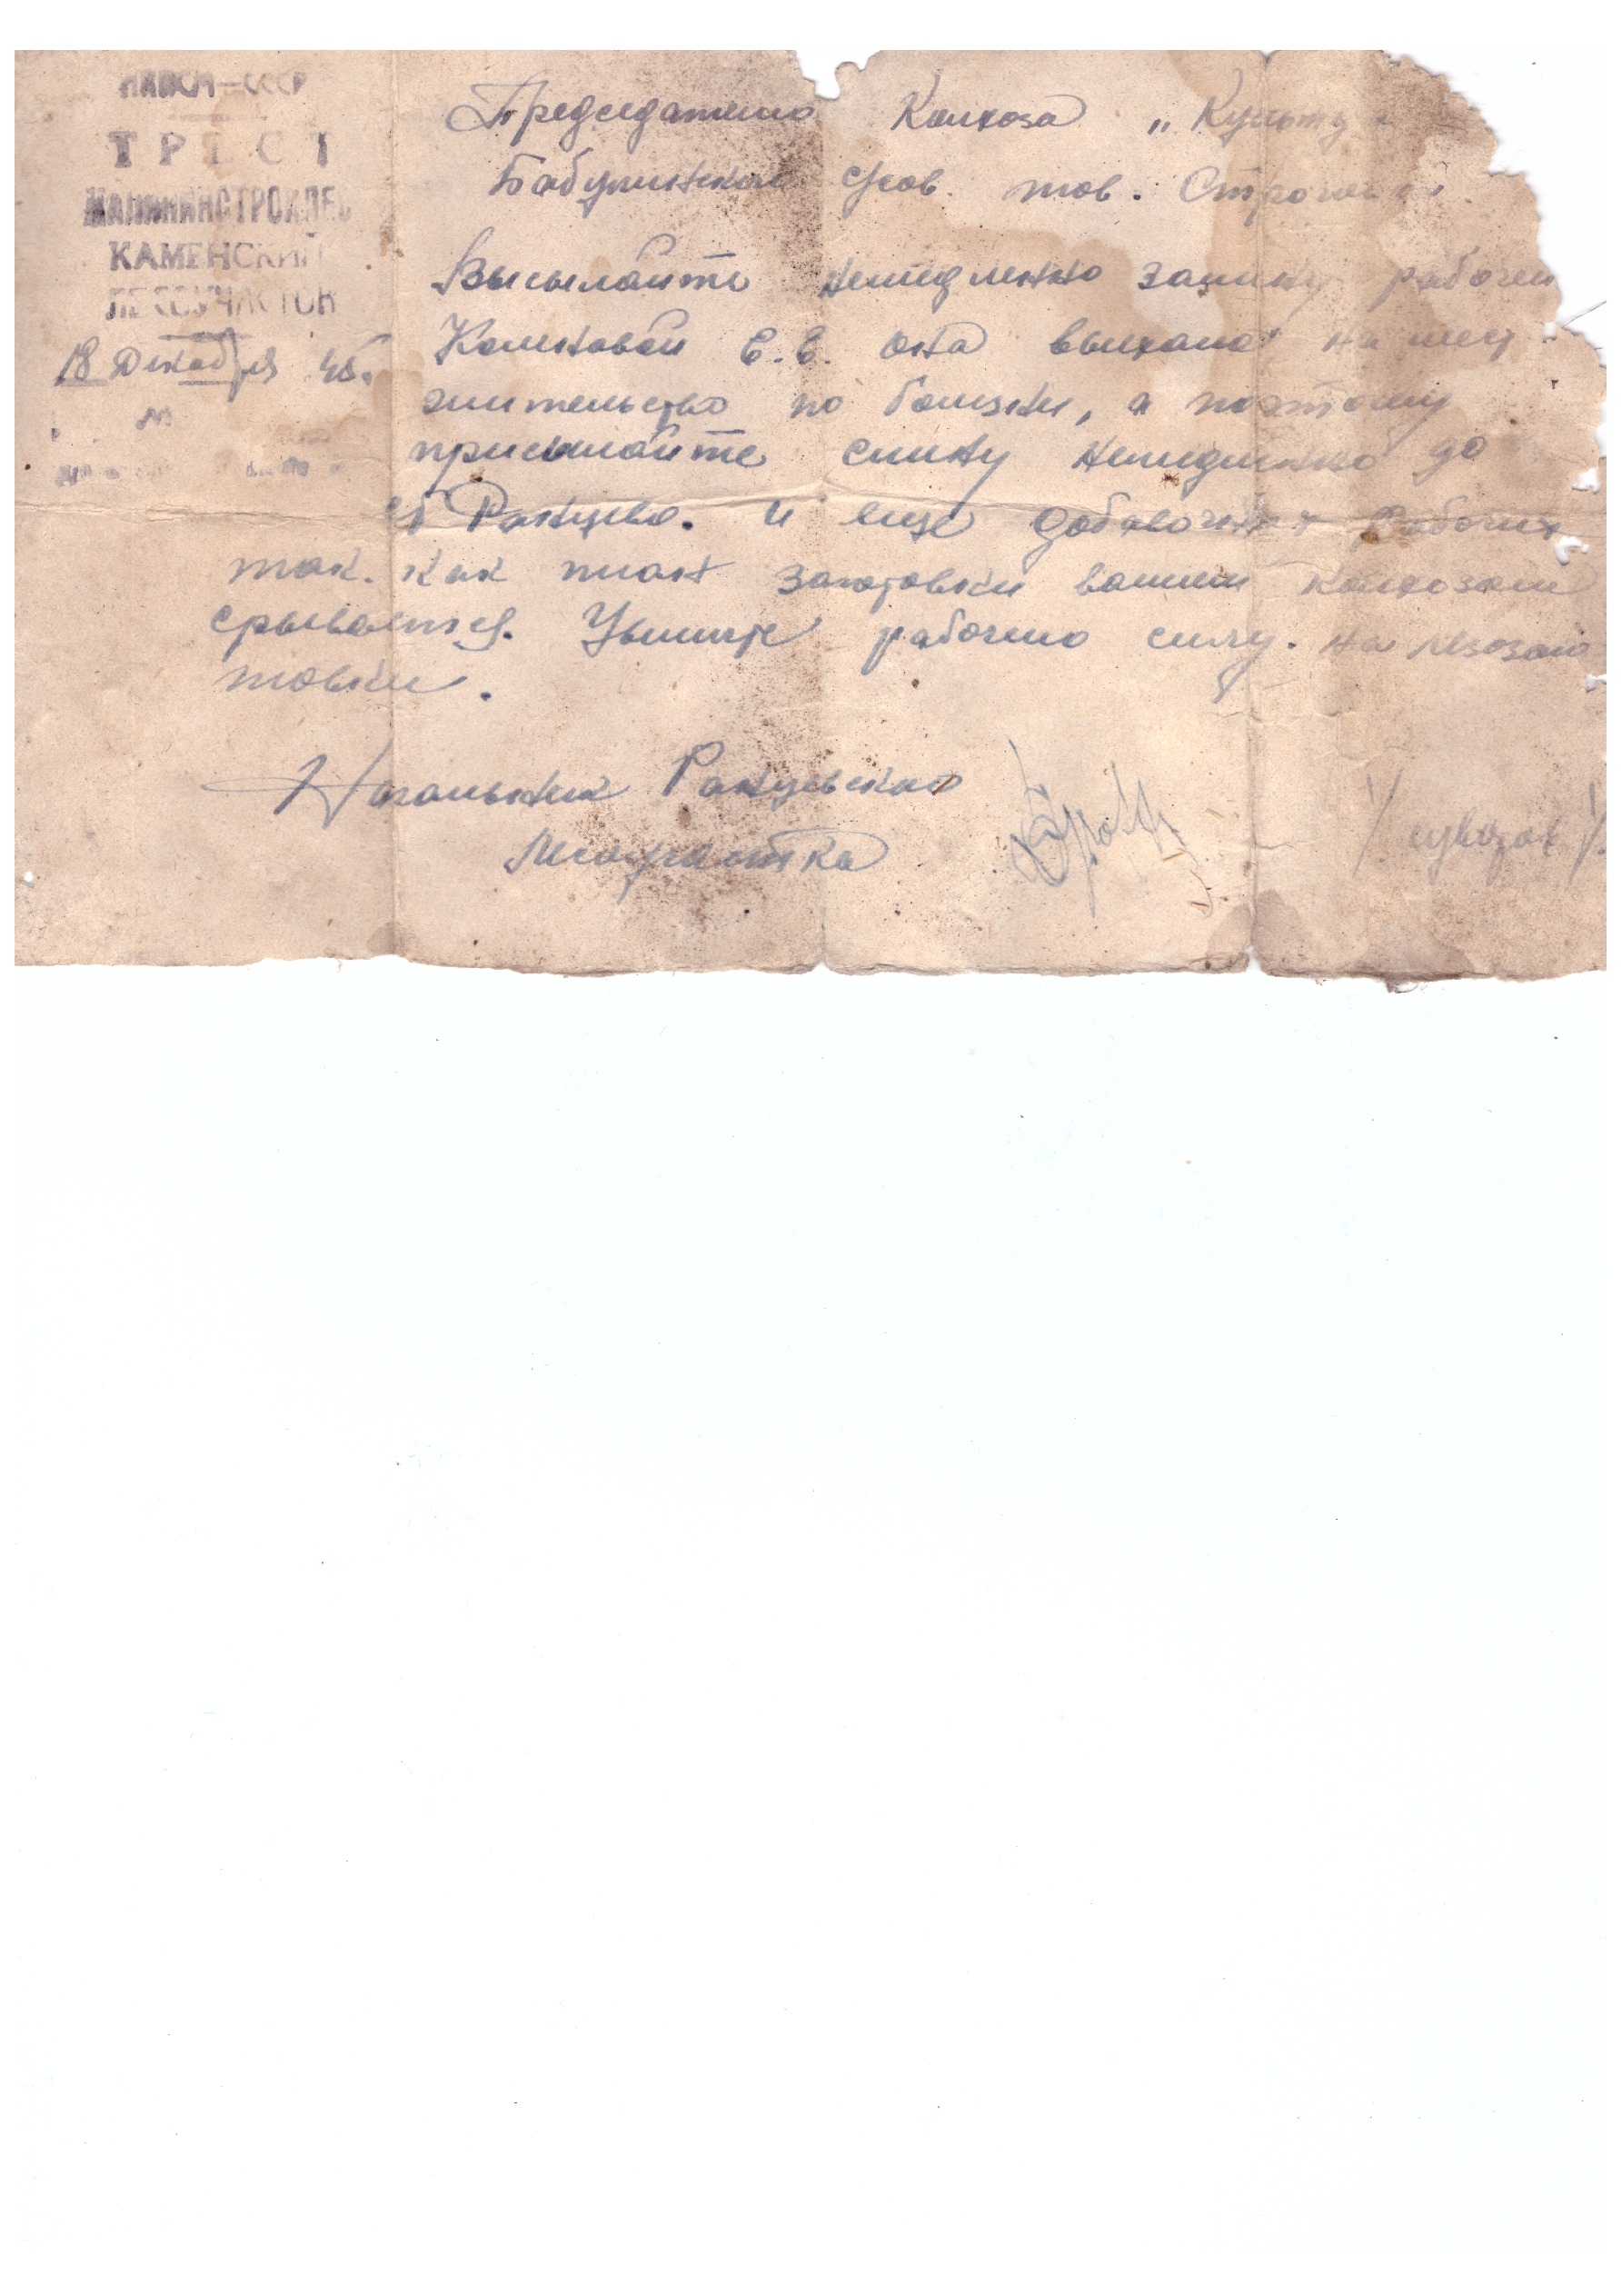 НКПСМ—СССР
ТРЕСТ
КАЛИНИНСТРОЙЛЕС
КАМЕНСКИЙ
ЛЕСОУЧАСТОК
18 Декабря 45.
№
Председателю Колхоза „Культура
Бабушинскаго с/сов. тов.
Высылайте немедленно замену рабочей
Комковой Е.В. она выехала на мест
жительство по болезни, а поэтому
присылайте смену немедленно до
с Ранцево. и еще добавочных рабочих
так. как план заготовки вашим колхозом
срывается. Увеличте рабочию силу. на лесозаго
товки.
Начальник Ранцевскаго
Лесоучастка